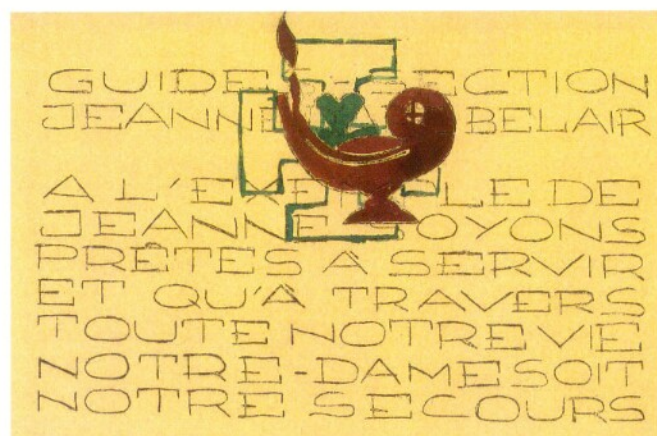 GUIDE SECTION
JEANNE BELAIR
A L'EXEMPLE DE
JEANNE SOYONS
PRÊTES À SERVIR
ET QU'À TRAVERS
TOUTE NOTRE VIE
NOTRE-DAME SOIT
NOTRE SECOURS